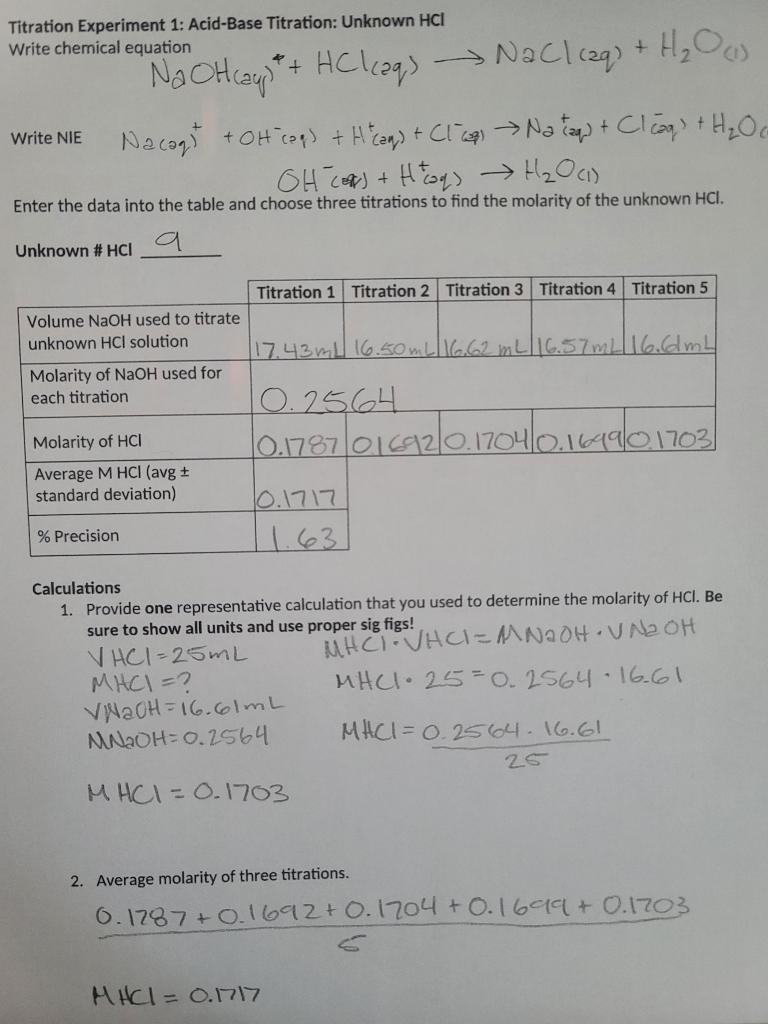 Titration Experiment 1: Acid-Base Titration: Unknown HCl
Write chemical equation
NaOH(aq) + HCl(aq) → NaCl(aq) + H₂O(l)
Write NIE Na(aq)⁺ + OH⁻(aq) + H⁺(aq) + Cl⁻(aq) → Na⁺(aq) + Cl⁻(aq) + H₂O(
OH⁻(aq) + H⁺(aq) → H₂O(l)
Enter the data into the table and choose three titrations to find the molarity of the unknown HCl.
Unknown # HCl 9
Titration 1 Titration 2 Titration 3 Titration 4 Titration 5
Volume NaOH used to titrate
unknown HCl solution 17.43mL 16.50mL 16.62mL 16.57mL 16.61mL
Molarity of NaOH used for
each titration 0.2564
Molarity of HCl 0.1787 0.1692 0.1704 0.1699 0.1703
Average M HCl (avg ±
standard deviation) 0.1717
% Precision 1.63
Calculations
1. Provide one representative calculation that you used to determine the molarity of HCl. Be
sure to show all units and use proper sig figs!
VHCl=25mL MHCl·VHCl=MNaOH·VNaOH
MHCl=? MHCl·25=0.2564·16.61
VNaOH=16.61mL
MNaOH=0.2564 MHCl=0.2564·16.61
25
MHCl=0.1703
2. Average molarity of three titrations.
0.1787+0.1692+0.1704+0.1699+0.1703
5
MHCl=0.1717